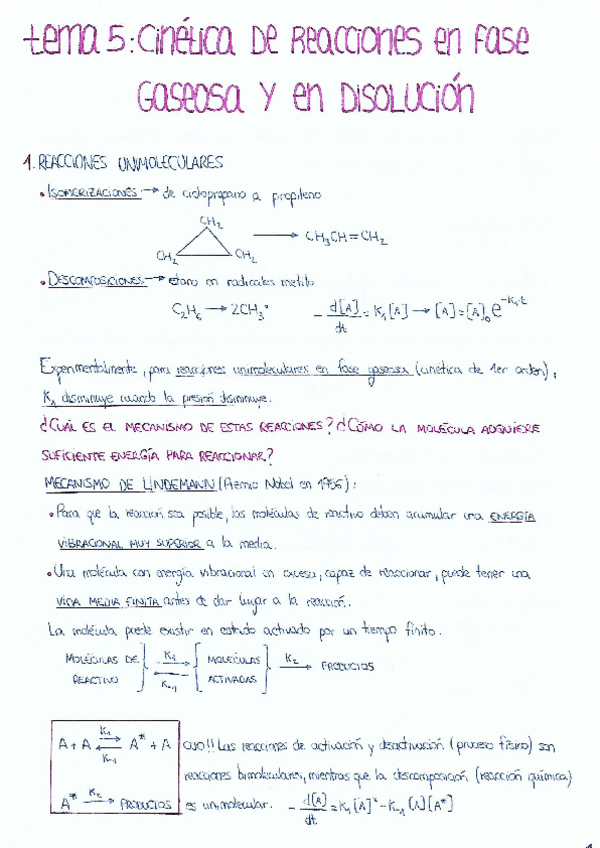 tema 5: Cinética De Reacciones en fase
Gaseosa y en Disolución
1. REACCIONES UNIMOLECULARES
• ISOMERIZACIONES → de ciclopropano a propileno
CH₂
CH₂ CH₂ → CH₃CH=CH₂
• DESCOMPOSICIONES → etano en radicales metilo
C₂H₆ → 2CH₃• - d[A]/dt = K₁[A] → [A]=[A]₀e^(-K₁·t)
Experimentalmente, para reacciones unimoleculares en fase gaseosa (cinética de 1er orden),
K₁ disminuye cuando la presión disminuye.
¿CUÁL ES EL MECANISMO DE ESTAS REACCIONES? ¿CÓMO LA MOLÉCULA ADQUIERE
SUFICIENTE ENERGÍA PARA REACCIONAR?
MECANISMO DE LINDEMANN (Premio Nobel en 1956):
• Para que la reacción sea posible, las moléculas de reactivo deben acumular una ENERGÍA
VIBRACIONAL MUY SUPERIOR a la media.
• Una molécula con energía vibracional en exceso, capaz de reaccionar, puede tener una
VIDA MEDIA FINITA antes de dar lugar a la reacción.
La molécula puede existir en estado activado por un tiempo finito.
MOLÉCULAS DE REACTIVO } K₁ ⇌ K₋₁ [ MOLÉCULAS ACTIVADAS ] K₂ → PRODUCTOS
A + A K₁ ⇌ K₋₁ A* + A OJO!! Las reacciones de activación y desactivación (proceso físico) son
reacciones bimoleculares, mientras que la descomposición (reacción química)
A* K₂ → PRODUCTOS es unimolecular. - d[A]/dt = K₁[A]² - K₋₁[A][A*]